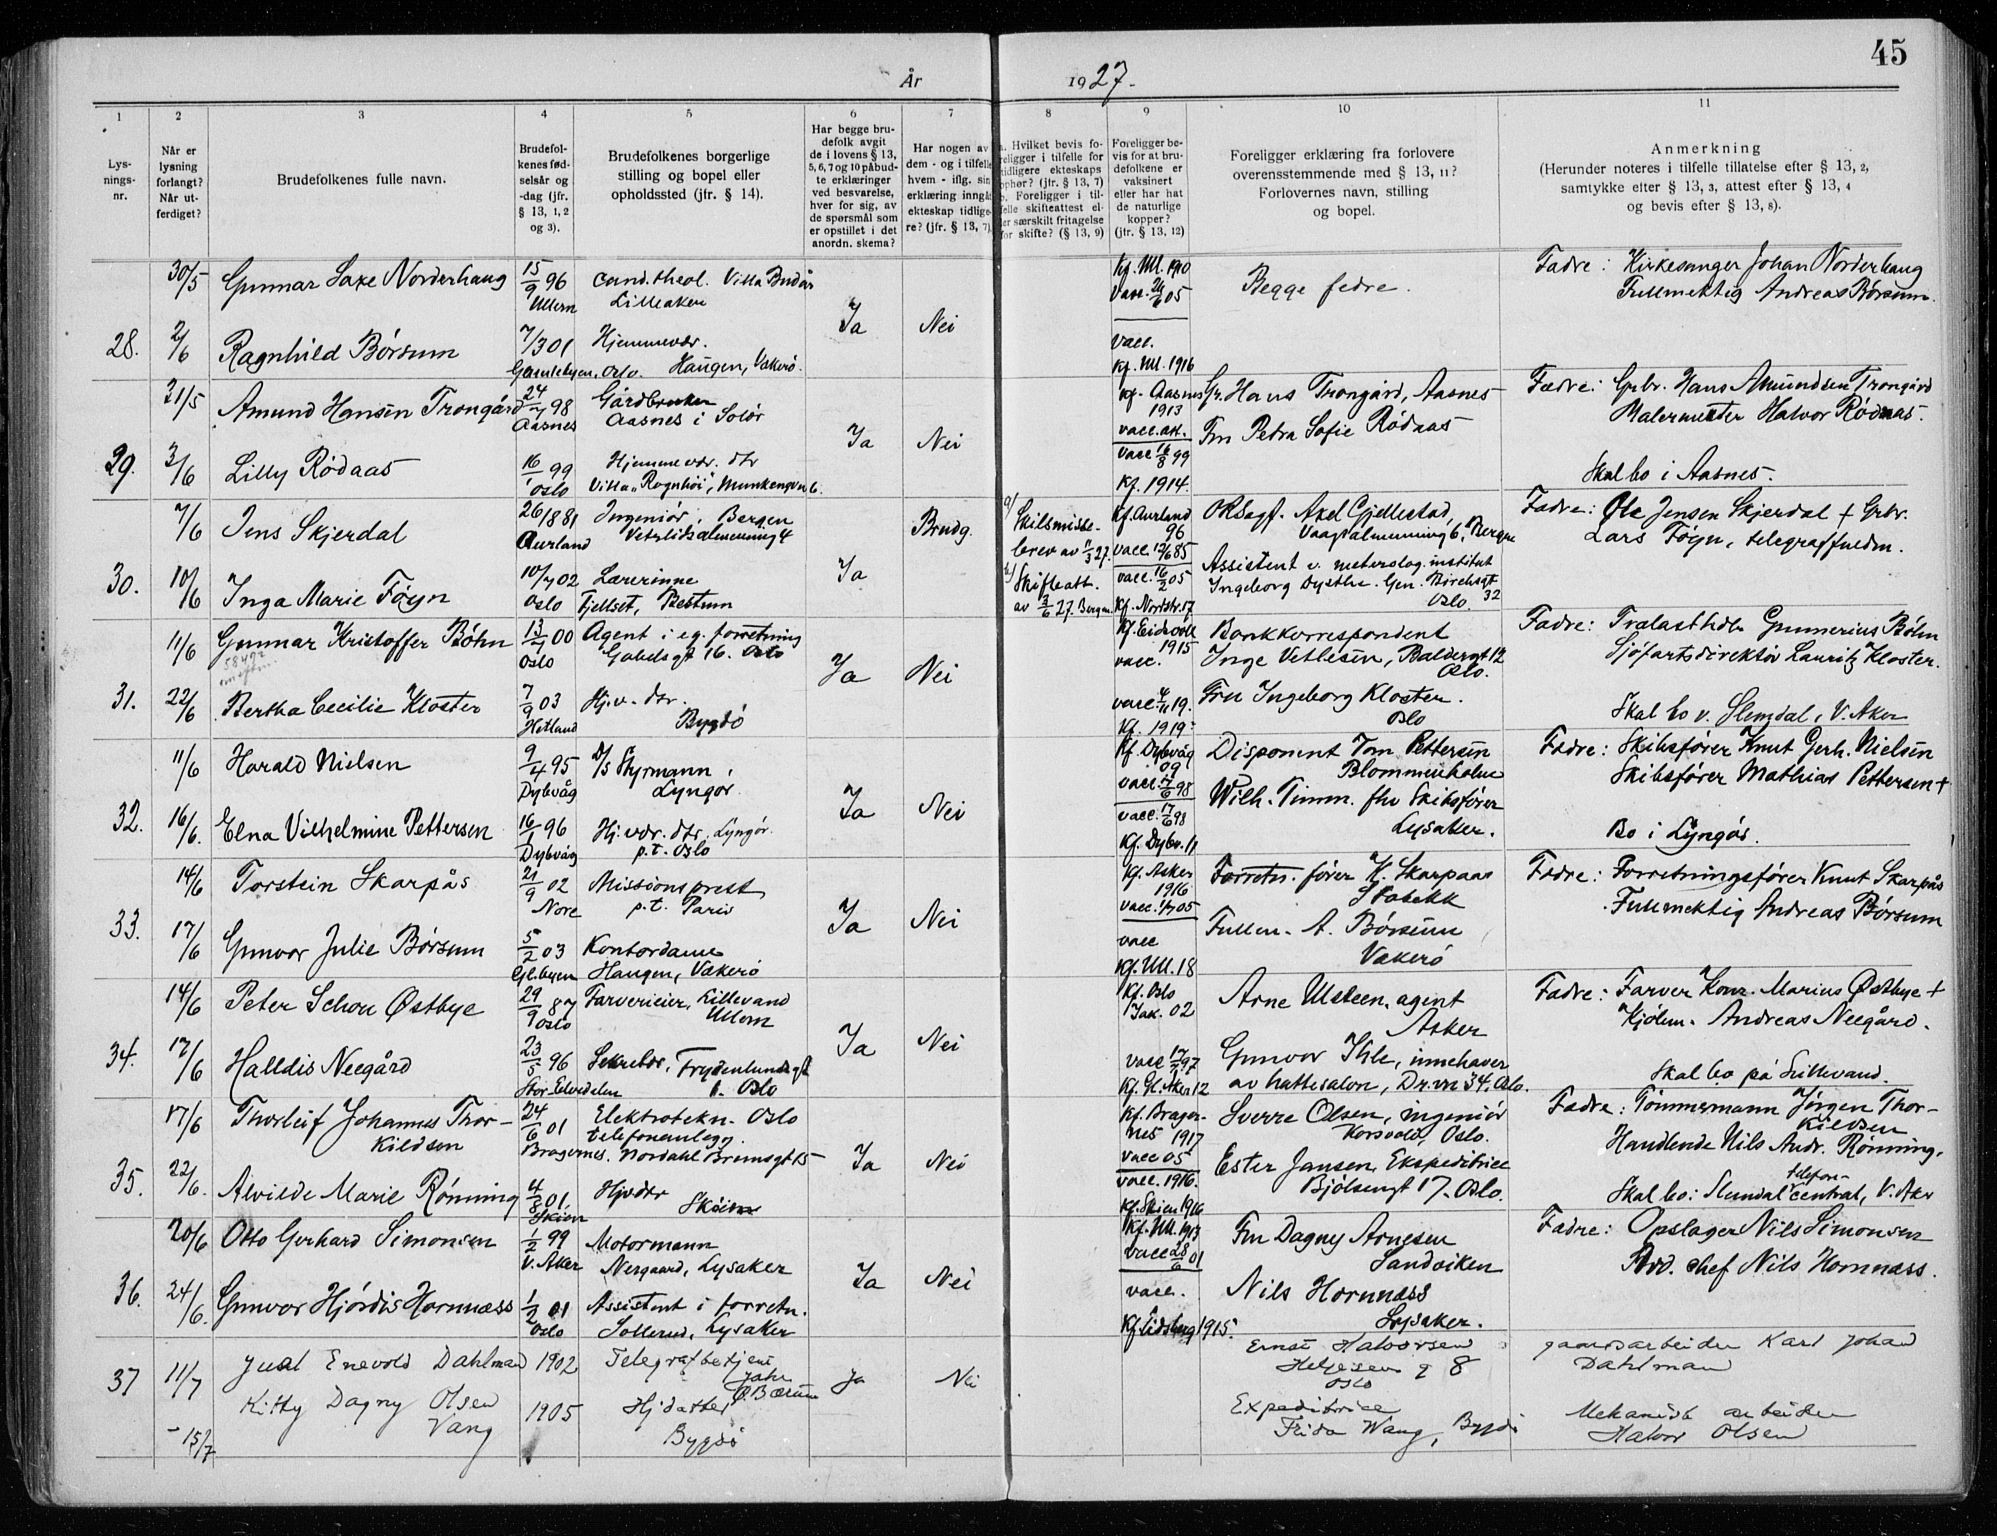 45
År 1927.
1 2 3 4 5 6 7 8 9 10 11
Lys-
nings-
nr.
Når er
lysning
forlangt?
Når ut-
ferdiget?
Brudefolkenes fulle navn.
Brudefol-
kenes fød-
selsår og
-dag (jfr.
§ 13, 1, 2
og 3).
Brudefolkenes borgerlige
stilling og bopel eller
opholdssted (jfr. § 14).
Har begge bru-
defolk avgit
de i lovens § 13,
5, 6, 7 og 10 påbud-
te erklæringer
ved besvarelse,
hver for sig, av
de spørsmål som
er opstillet i det
anordn. skema?
Har nogen av
dem - og i tilfelle
hvem - iflg. sin
erklæring inngå
ekteskap tidlige-
re? (jfr. § 13, 7)
a. Hvilket bevis fo-
religger i tilfelle for
tidligere ekteskaps
ophør? (jfr. § 13, 7)
b. Foreligger i til-
felle skifteattest el-
ler særskilt fritagelse
for skifte? (§ 13, 9)
Foreligger be-
vis for at bru-
defolkene er
vaksinert
eller har hat
de naturlige
kopper?
(jfr. § 13, 12)
Foreligger erklæring fra forlovere
overensstemmende med § 13, 11?
Forlovernes navn, stilling
og bopel.
Anmerkning
(Herunder noteres i tilfelle tillatelse efter § 13, 2,
samtykke efter § 13, 3, attest efter § 13, 4
og bevis efter § 13, 8).
28.
30/5
2/6
Gunnar Saxe Norderhaug
Ragnhild Børsum
15/9 96
Ullern
7/3 01
Gamlebyen, Oslo.
cand. theol. Villa Budår
Lilleaker
Hjemmevær.
Haugen, Vækerø.
Ja
Nei
Kf. Ull. 1910
Vacc. 24/6 05
vacc.
Kf. Ull. 1916
Begge fedre.
Fædre: Kirkesanger Johan Norderhaug
Fullmektig Andreas Børsum.
29.
31/5
3/6
Amund Hansen Trongård
Lilly Rødaas
24/7 98
Aasnes
16/1 99
Oslo
Gårdbruker
Aasnes i Solør
Hjemmevær. dtr
Villa "Ragnhøi", Munkengvn 6.
Ja
Nei
Kf. Aasnes
1913
vacc. att.
vacc 16/8 99
Kf. 1914.
Gr. Hans Trongård, Aasnes
Fru Petra Sofie Rødaas
Fædre: Grbr. Hans Amundsen Trongård
Malermester Halvor Rødaas.
Skal bo i Aasnes.
30.
7/6
10/6
Jens Skjerdal
Inga Marie Føyn
26/1 881
Aurland
10/7 02
Oslo
Ingeniør, Bergen
Vetrlidsalmenning 4
Lærerinne
Fjellset, Bestum
Ja
Brudg.
a/ Skilsmisse-
brev av 11/3 27.
b/ Skifteatt.
av 3/6 27. Bergen
Kf. Aurland
96
vacc. 12/6 85
vacc. 16/2 05
Kf. Nordstr. 17
ORSagf. Axel Gjellestad,
Vaagsalmenning 6, Bergen
Assistent v. meterolog. institut
Ingeborg Dysthe. Gen. Birchsgt
32
Oslo.
Fædre: Ole Jensen Skjerdal + Grbr.
Lars Føyn, telegraffullm.
31.
11/6
22/6
Gunnar Kristoffer Bøhn
Bertha Cecilie Kloster
13/4 00
Oslo
7/9 03
Hetland
Agent i eg. forretning
Gabelsgt 16. Oslo
Hj.v. dtr.
Bygdø
Ja
Nei
Kf. Eidsvoll
1915
vacc.
vacc 4/11 19.
Kf. 1919:
Bankkorrespondent
Inge Vetlesen, Baldersgt 12
Oslo.
Fru Ingeborg Kloster.
Oslo
Fædre: Trælasthdlr Gunnerius Bøhn
Sjøfartsdirektør Lauritz Kloster.
Skal bo v. Slemdal, V. Aker
32.
11/6
16/6.
Harald Nielsen
Elna Vilhelmine Pettersen
9/4 95
Dybvåg
16/1 96
Dybvåg
D/S Styrmann,
Lyngør.
Hj. vær. dtr. Lyngør.
p.t. Oslo
Ja
Nei
Kf. Dybvåg
09
vacc. 17/6 98
vacc. 17/6 98
Kf. Dybv. 11
Disponent Tom Pettersen
Blommenholm
Wilh. Timm. fhv Skibsfører
Lysaker.
Fædre: Skibsfører Knut Gerh. Nielsen
Skibsfører Mathias Pettersen +
Bo i Lyngør.
33.
14/6
17/6
Torstein Skarpås
Gunvor Julie Børsum
21/9 02
Nore
5/2 03
Gl.byen
Missionsprest
p.t. Paris
Kontordame
Haugen, Vækerø
Ja
Nei
Kf. Asker
1916
vacc. 1/7 05
vacc
Kf. Ull. 18
Forretn. fører K. Skarpaas
Stabekk
Fullm. A. Børsum
Vækerø
Fædre: Forretningsfører Knut Skarpås
Fullmektig Andreas Børsum
34.
14/6
17/6
Peter Schou Østbye
Halldis Neegård
29/9 87
Oslo
23/5 96
Stor Elvedalen
Farverieier, Lillevand
Ullern
Sekretær, Frydenlundsgt
Oslo
Ja
Nei
Kf. Oslo
Jak. 02
vacc 17/7 97
Kf. Gl. Aker 12
Arne Ulsteen, agent
Asker
Gunvor Ihle, innehaver
av hattesalon, Dr.vn 34, Oslo.
Fædre: Farver Konr. Marius Østbye +
Kjøbm. Andreas Neegård.
Skal bo på Lillevand.
35.
17/6
22/6.
Thorleif Johannes Thor-
kildsen
Alvilde Marie Rønning
24/6 01
Bragernes.
4/8 01.
Skien
Elektrotekn. Oslo
telefonanlegg.
Nordahl Brunsgt 15
Hjvdtr
Skøien
Ja
Nei
Kf. Brager-
nes 1917
vacc 05
vacc. 1916.
Kf. Skien 1916
Sverre Olsen, ingeniør
Korsvold, Oslo.
Ester Jansen, Ekspeditrice
Bjølsengt 17. Oslo.
Fædre: Tømmermann Jørgen Thor-
kildsen
Handlende Nils Andr. Rønning.
Skal bo: Slemdal telefon-
central, V. Aker
36.
20/6
24/6.
Otto Gerhard Simonsen
Gunvor Hjørdis Hornnæss
1/2 99
V. Aker
1/2 01
Oslo
Motormann
Nergaard, Lysaker
Assistent i forretn.
Sollerud, Lysaker
Ja
Nei
Kf. Ull. 1913
vacc 28/6 01
vacc.
Kf. Eidsberg 1915.
Fru Dagny Arnesen
Sandviken
Nils Hornnæss
Lysaker.
Fædre: Opslager Nils Simonsen
Avd. chef Nils Hornnæss.
37
11/7
- 15/7
Juel Enevold Dahlman
Kitty Dagny Olsen
Vang
1902
1905
Telegrafbetjent
Jahr
Ø. Bærum
Hjdatter
Bygdø
Ja
Nei
Ernst Halvorsen
Helgesens g 8
Oslo
Expeditrice
Frida Wang, Bygdø
gaardsarbeider Karl Johan
Dahlman
Mekanisk arbeider
Halvor Olsen